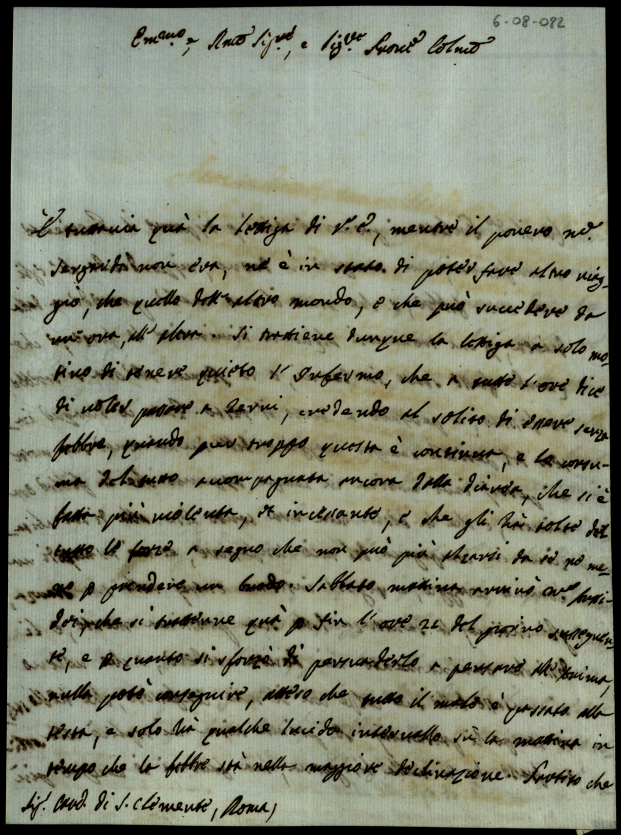 6-08-082
Em.mo, e Rmo Sig.re, e Sig.re Prone Colmo
È tuttavia quà la lettiga di V. E., mentre il povero m.r
Sergardi non era, ne è in stato di poter fare altro viag-
gio, che quello dell' altro mondo, e che può succedere da
un' ora, all' altra. Si trattiene dunque la lettiga a solo mo-
tivo di tenere quieto l' Infermo, che a tutte l' ore dice
di voler passare a Terni, credendo al solito di essere senza
febbre, quando pur troppo questa è continua, e lo consu-
ma del tutto accompagnata ancora dalla diarea, che si è
fatta più violenta, et incessante, e che gli hà tolte del
tutto le forze a segno che non può più alzarsi da se ne me-
no p prendere un brodo. Sabbato mattina arrivò m.r
che si trattenne quà p fin l' ore 21 del giorno susseguen-
te, e p quanto si sforzò di persuaderlo a pensare all' anima,
nulla potè conseguire, atteso che tutto il male è passato alla
testa, e solo hà qualche lucido intervallo sù la mattina in
tempo che la febbre stà nella maggiore declinazione. Partito che
Sig.r Card. di S. Clemente, Roma